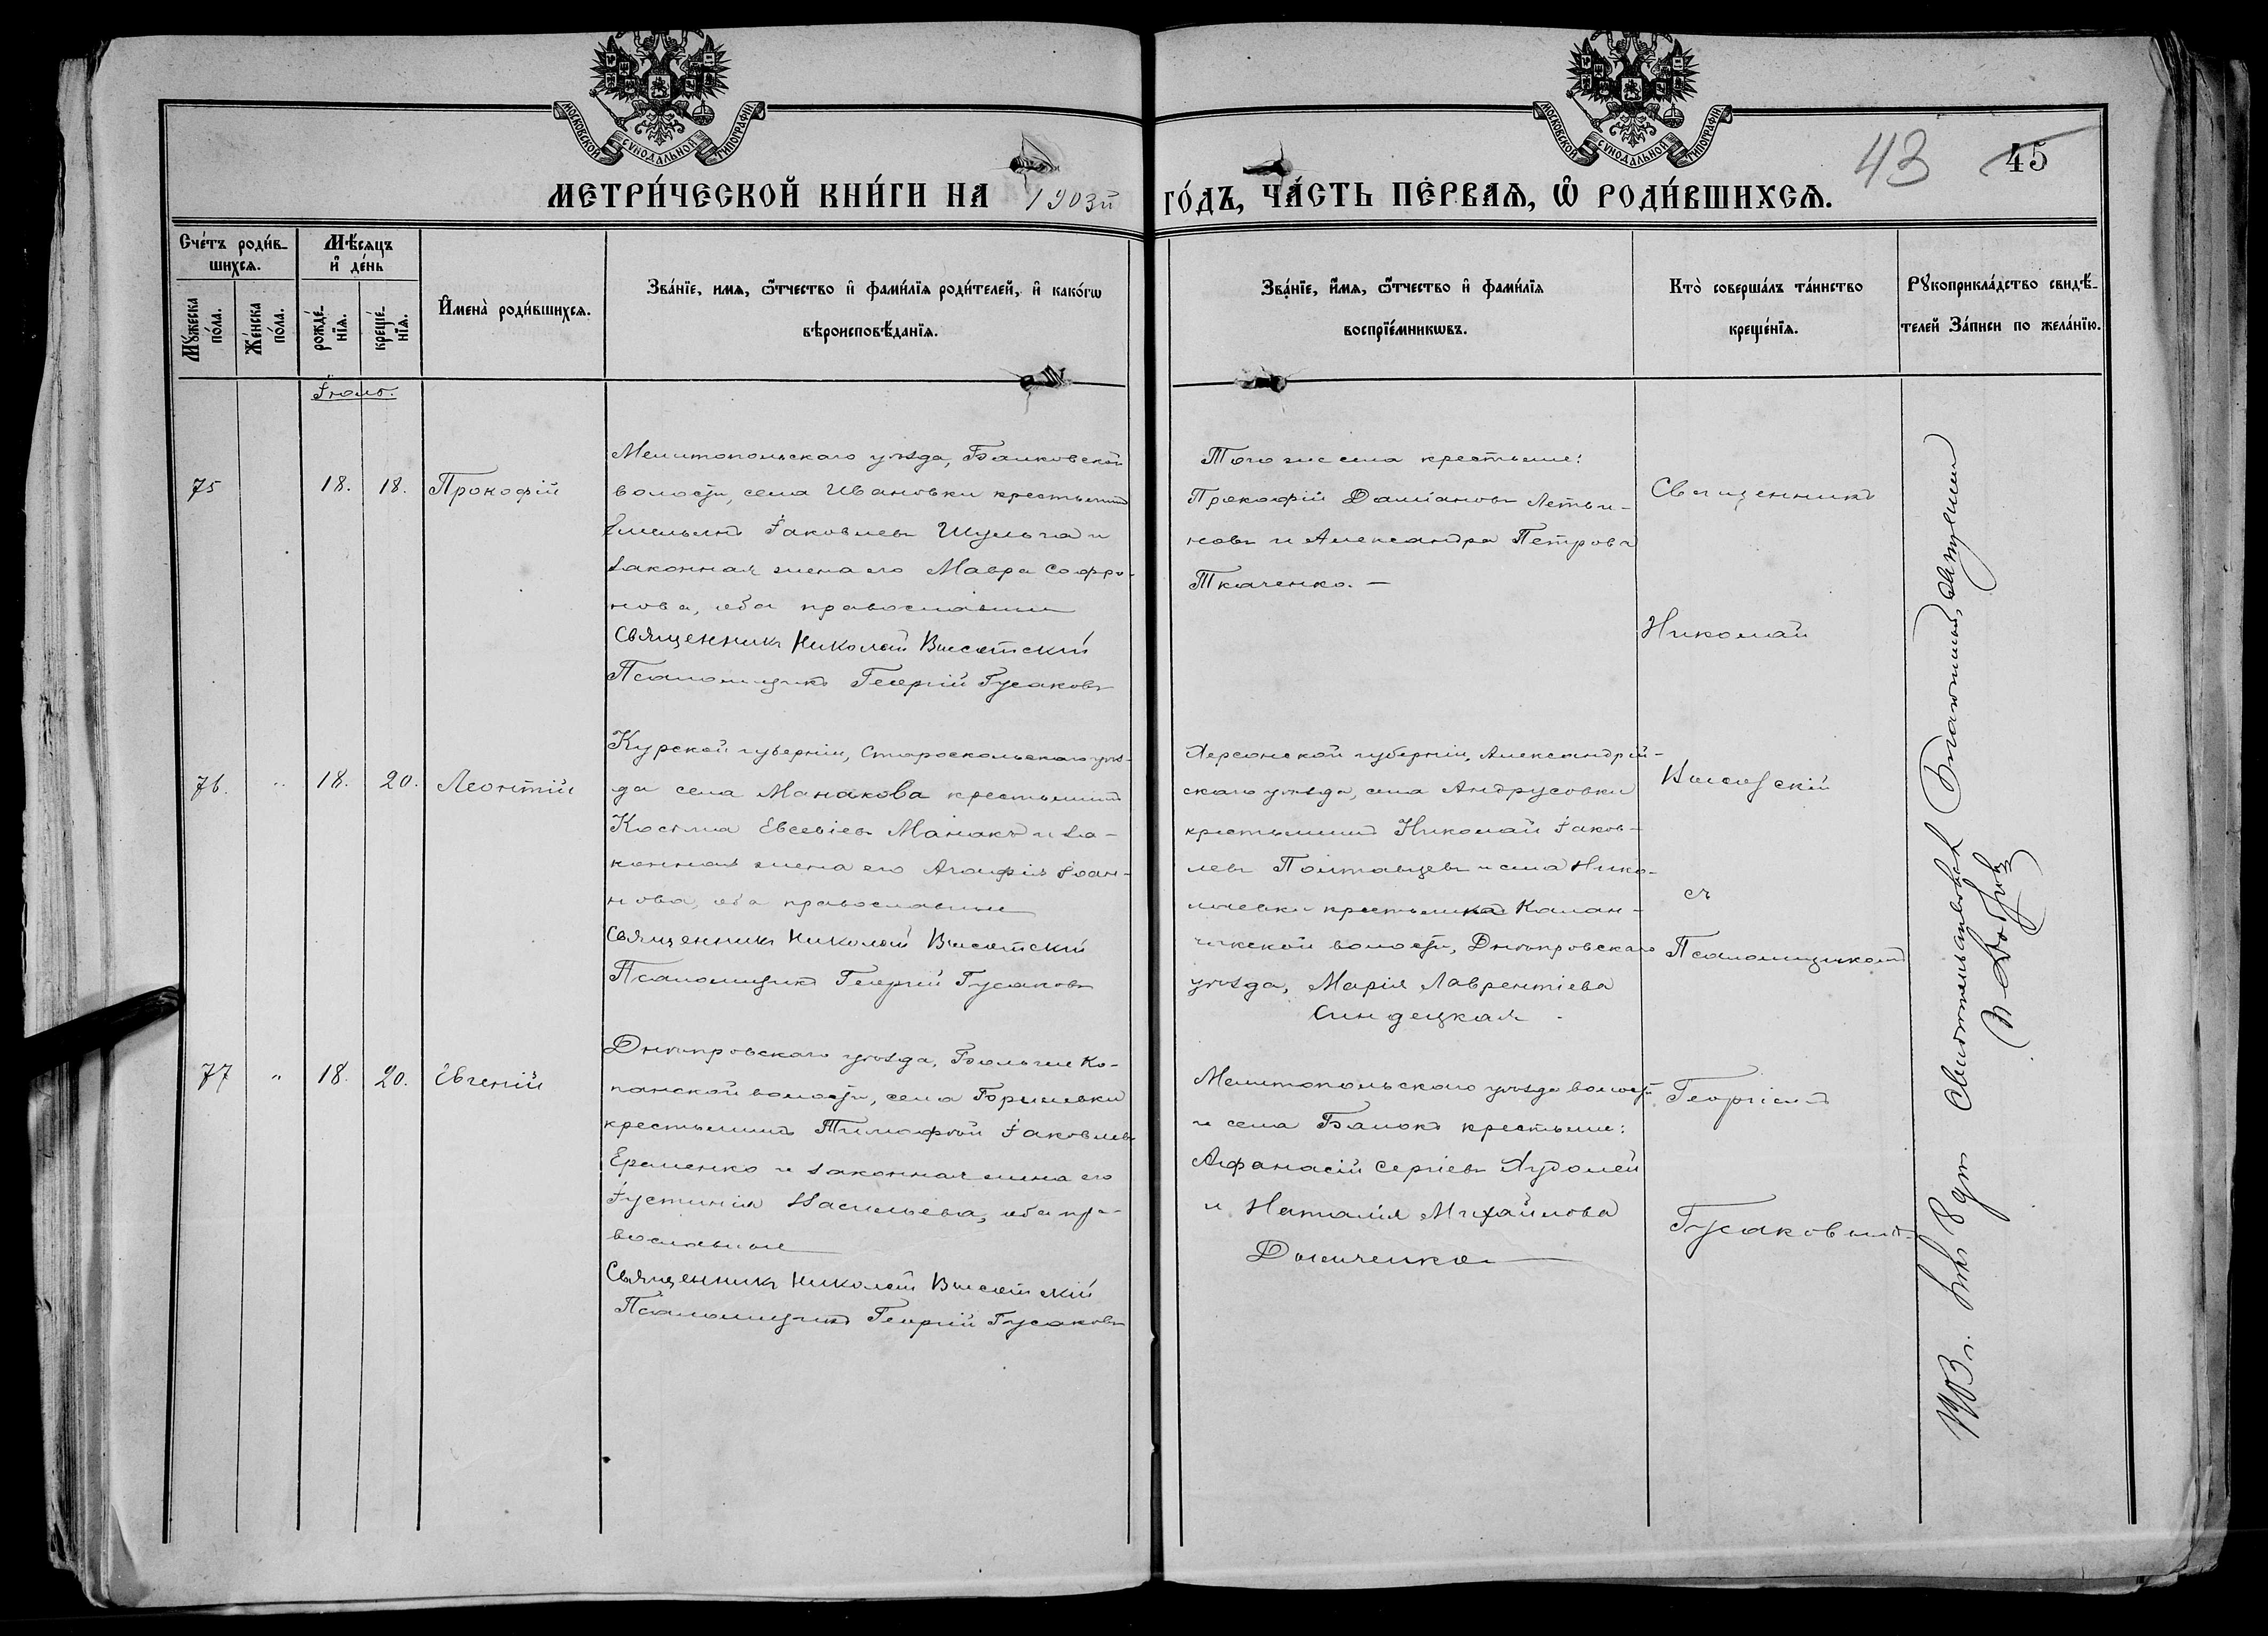 МОСКОВСКОЙ СѴНОДАЛЬНОЙ ТИПОГРАФІИ
МОСКОВСКОЙ СѴНОДАЛЬНОЙ ТИПОГРАФІИ
43 45
МЕТРИ́ЧЕСКОЙ КНИ́ГИ НА 1903й ГО́ДЪ, ЧА́СТЬ ПЕ́РВАѦ, Ѡ҆ РОДИ́ВШИХСѦ.
Сче́тъ роди́в-
шихсѧ.
Мꙋ́жеска по́ла.
Же́нска по́ла.
Мѣ́сяцъ
и҆ де́нь
рожде́-
нїѧ.
креще́-
нїѧ.
И҆мена̀ роди́вшихсѧ.
Зва́нїе, имѧ, ѻ҆́тчество и҆ фами́лїѧ роди́телей, и҆ како́гѡ
вѣроисповѣ́данїѧ.
Зва́нїе, и҆́мѧ, ѻ҆́тчество и҆ фами́лїѧ
воспрїе́мникѡвъ.
Кто̀ соверша́лъ та́инство
креще́нїѧ.
Рꙋкоприкла́дство свидѣ́-
телей За́писи по жела́нїю.
Іюль.
75
18. 18. Прокофій
Мелитопольскаго уѣзда, Балковской
волости, села Ивановки крестьянинъ
Емельянъ Іаковлевъ Шульга и
законная жена его Мавра Софро-
нова, оба православные
Священникъ Николай Высотскій
Псаломщикъ Георгій Гусаковъ
Того же села крестьяне:
Прокофій Даміановъ Летви-
новъ и Александра Петрова
Ткаченко. —
76. " 18. 20. Леонтій
Курской губерніи, Старооскольскаго уѣз-
да села Манакова крестьянинъ
Косьма Евсевіевъ Манакъ и за-
конная жена его Агафія Іоан-
нова, оба православные
Священникъ Николай Высотскій
Псаломщикъ Георгій Гусаковъ
Херсонской губерніи, Александрій-
скаго уѣзда, села Андрусовки
крестьянинъ Николай Іаков-
левъ Полтавцевъ и села Нико-
лаевки крестьянка Калан-
чакской волости, Днѣпровскаго
уѣзда, Марія Лаврентіева
Синдецкая.
77 " 18. 20. Евгеній
Днѣпровскаго уѣзда, Больше Ко-
панской волости, села Брилевки
крестьянинъ Тимофей Іаковлевъ
Еременко и законная жена его
Іустинія Васильева, оба пра-
вославные
Священникъ Николай Высотскій
Псаломщикъ Георгій Гусаковъ
Мелитопольскаго уѣзда волости
и села Балокъ крестьяне:
Афанасій Сергіевъ Худолей
и Наталія Михайлова
Дымченко
Священникъ
Николай
Высотскій
съ
Псаломщикомъ
Георгіемъ
Гусаковымъ.
1903 г. Свидѣтельствовалъ Благочинный,